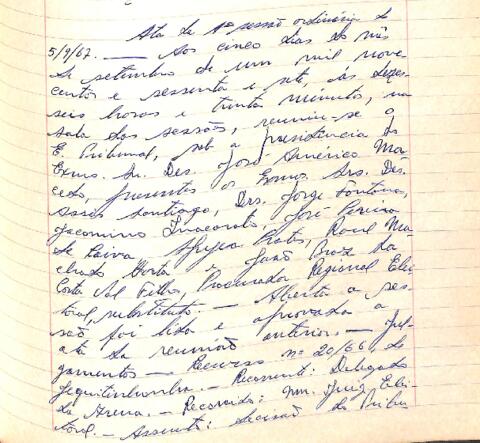 Ata da 1ª sessão ordinária de
5/9/67. — Aos cinco dias do mês
de setembro de um mil nove-
centos e sessenta e sete, às dezes-
seis horas e trinta minutos, na
sala das sessões, reuniu-se o
E. Tribunal, sob a presidência do
Exmo. Sr. Des. José Américo Ma-
cedo, presentes os Exmos. Srs. Des.
Assis Santiago, Drs. Jorge Fontana,
Jacomino Inacarato, José Pereira
de Paiva, Prates, Raul Ma-
chado Horta e João Braz da
Costa Val Filho, Procurador Regional Elei-
toral, substituto. — Aberta a ses-
são foi lida e aprovada a
ata da reunião anterior. — Jul-
gamentos — Recurso nº 20/66, de
Jequitinhonha. — Recorrente: Delegado
da Arena. — Recorrido: MM. Juiz Elei-
toral. — Assunto: decisão do